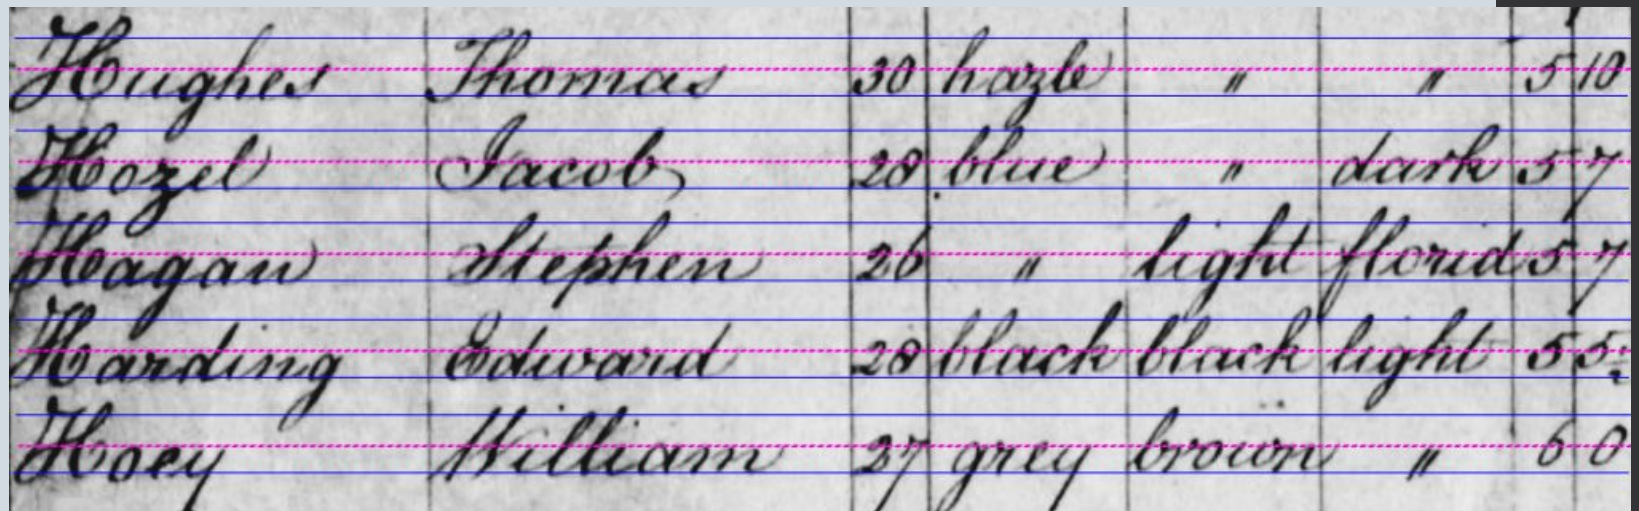 Hughes Thomas 30 hazle " " 5 10
Hozel Jacob 28 blue " dark 5 7
Hagan Stephen 26 " light florid 5 7
Harding Edward 28 black black light 5
Hoey William 27 grey brown " 6 0